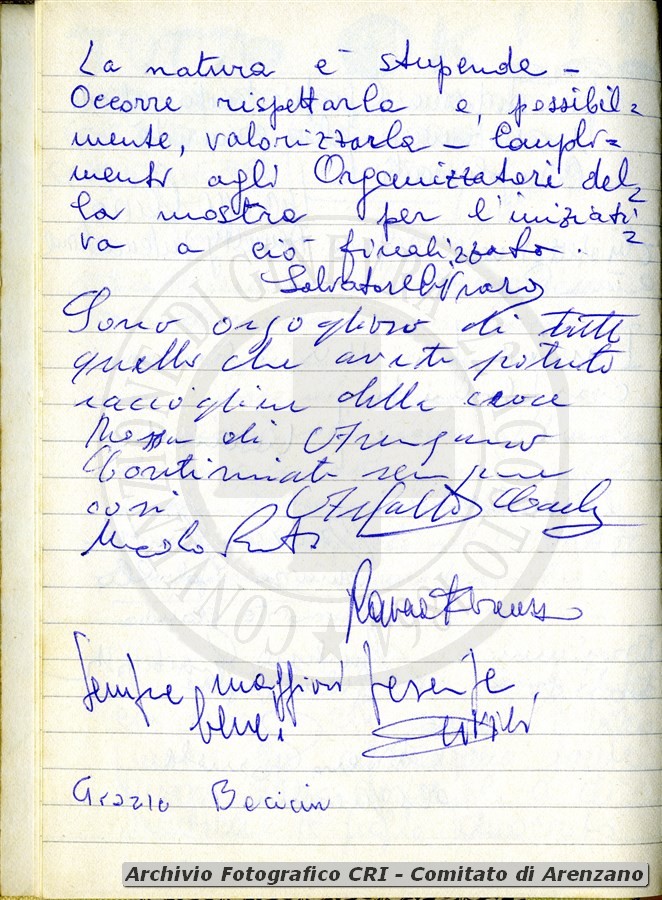 La natura è stupenda -
Occorre rispettarla e, possibil=
mente, valorizzarla - Compli=
menti agli Organizzatori del=
la mostra per l'iniziati=
va a ciò finalizzata.
Salvatore
Sono orgoglioso di tutto
quello che avete potuto
raccogliere della croce
Rossa di Arenzano
Continuate sempre
così
Sempre maggiori
bene!
Grazie
CONVENZIONE DI GINEVRA 22 AGOSTO 1864
Archivio Fotografico CRI - Comitato di Arenzano